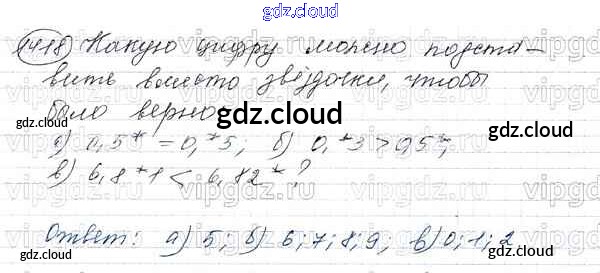 gdz.cloud
1418 Какую цифру можно подста-
gdz.cloud
вить вместо звёздочки, чтобы
было верно
gdz.cloud
а) 0,5* = 0,*5; б) 0,*3 > 0,5*;
в) 6,8*1 < 6,82*?
gdz.cloud gdz.cloud
Ответ: а) 5; б) 6; 7; 8; 9; в) 0; 1; 2
gdz.cloud gdz.cloud